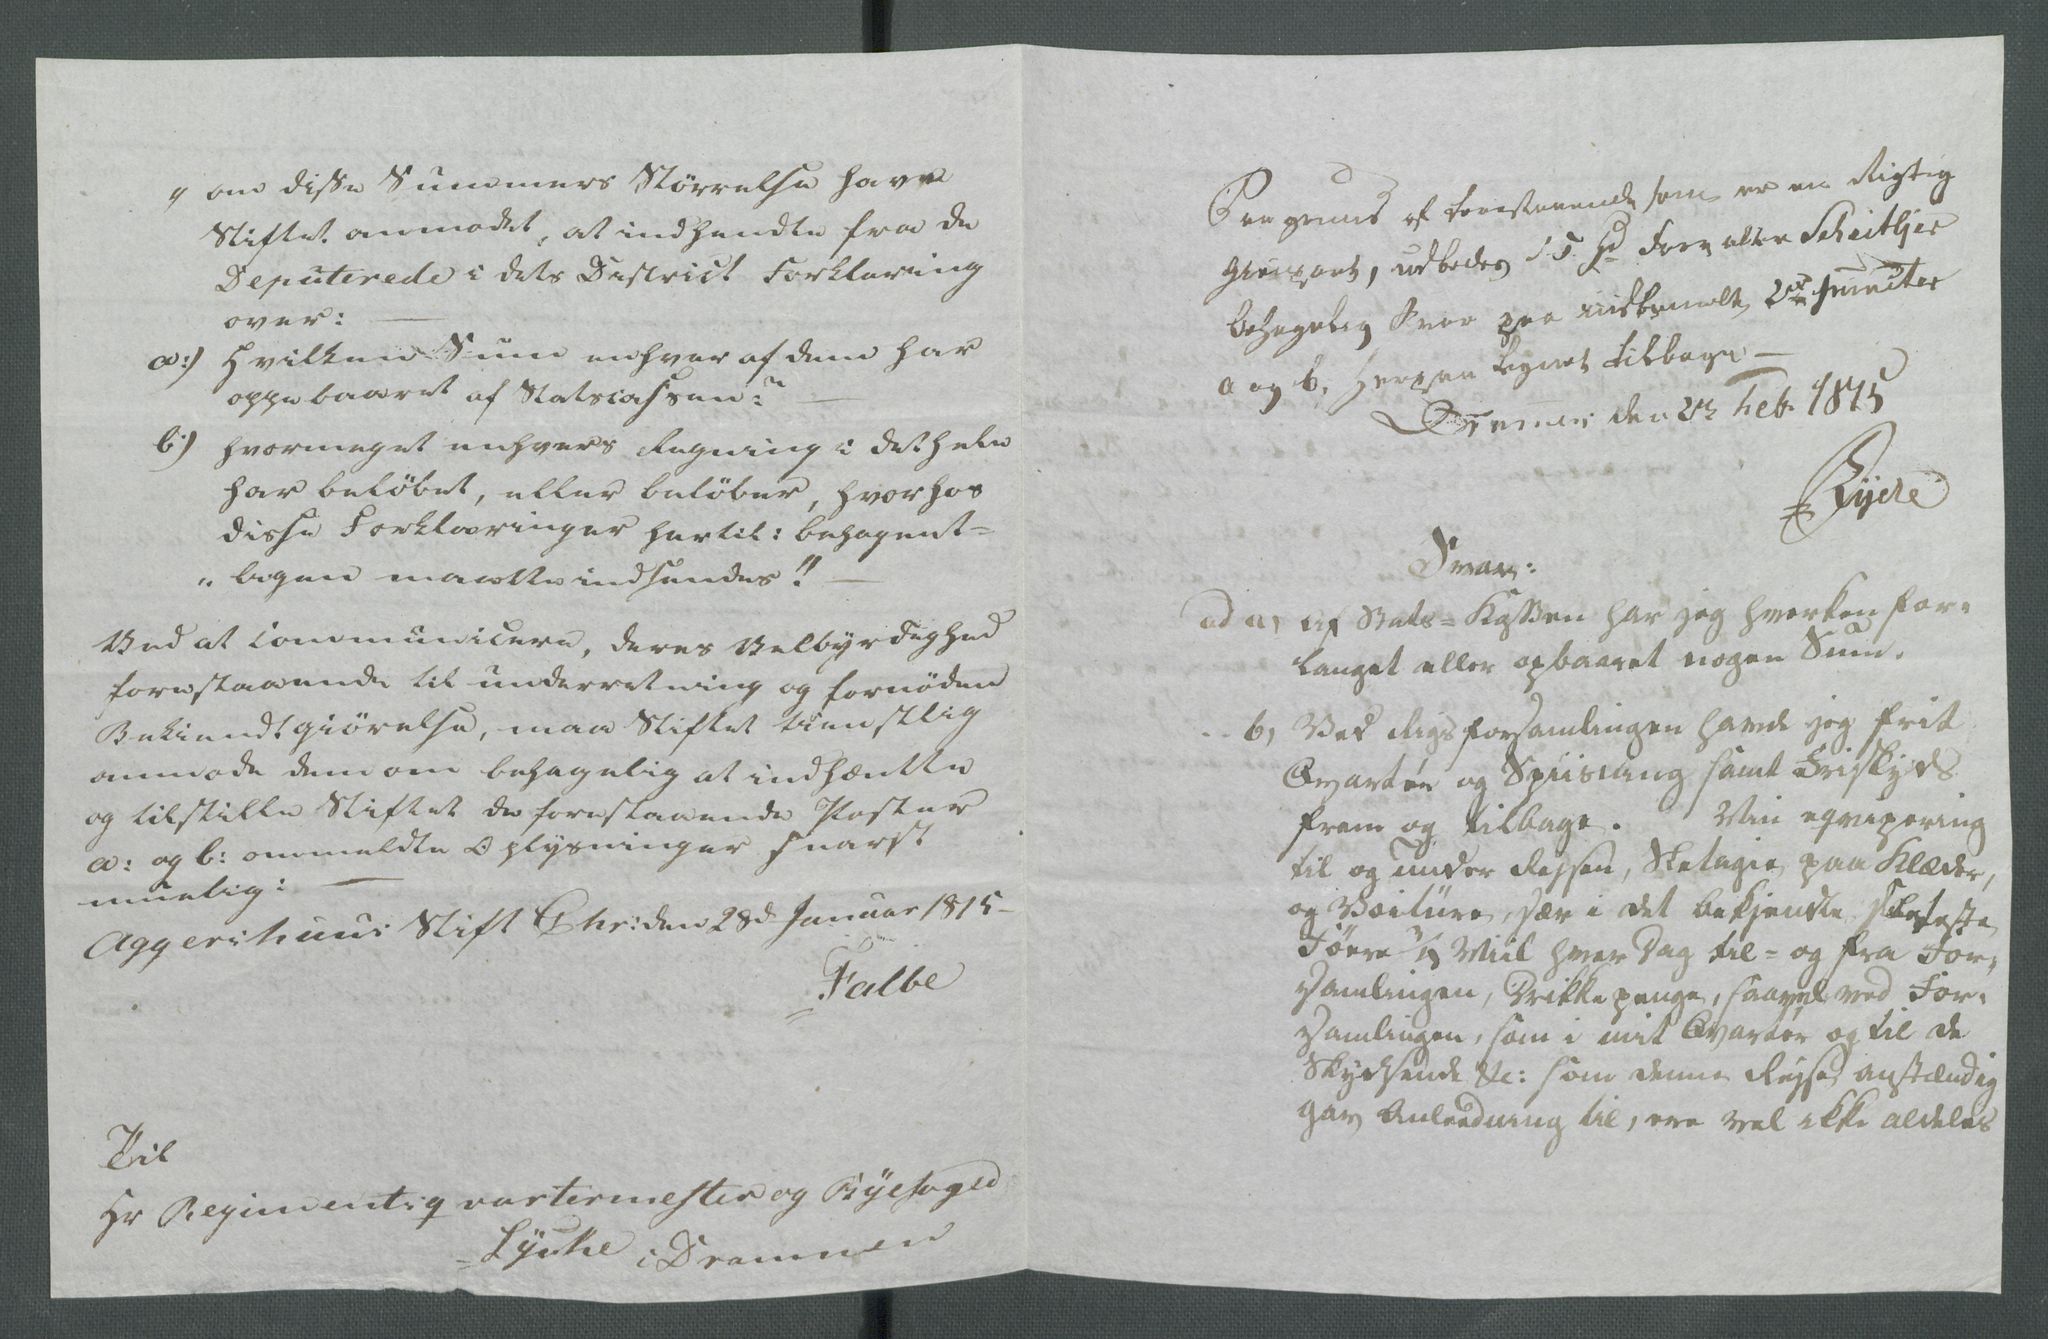 " om disse Summers Störrelse have
Stiftet anmodet, at indhendte fra de
Deputerede i dets District Forklaring
over:
a:) Hvilken Sum enhver af dem har
oppebaaret af Statscassen?
b:) hvormeget enhvers Regning i det hele
har belöbet, eller belöber, hvorhos
disse Forklaringer hertil: behagent-
" ligen maatte indsendes!"
Ved at communicere, deres Velbÿrdighed
forestaaende til underretning og fornöden
Bekiendtgiörelse, maa Stiftet tienstlig
anmode dem om behagelig at indhæntte
og tilstille Stiftet de forestaaende Poster
a: og b: ommeldte Oplysninger snarst
muelig:
Aggershuus Stift Chr: den 28d Januar 1815-
Falbe
Til
Hr Regimentsqvartermester og Bÿefoged
Lÿche i Drammen
af forestaaende som er en Rigtig
Gienpart, udbedes S T Hr Forvalter
behagelig Svar paa
a og b, tegnet tilbage
den Feb. 1815
Svar:
ad a, Af Stats-Kassen har jeg hverken for-
langet eller opbaaret nogen Sum.
.. b, Ved Rigsforsamlingen havde jeg frit
Qvarteer og Spiisning samt Friskyds
frem og tilbage. Min eqvipering
til og under Rejsen, Sletagie paa Klæder,
og Voiture, især i det bekjendte sletteste
Föere Miil hver Dag til- og fra For-
samlingen, Drikkepenge, saavel ved For-
samlingen, som i mit Qvarteer og til de
Skydsende &c: som denne Rejse anstændig
gav Anledning til, ere vel ikke aldeles